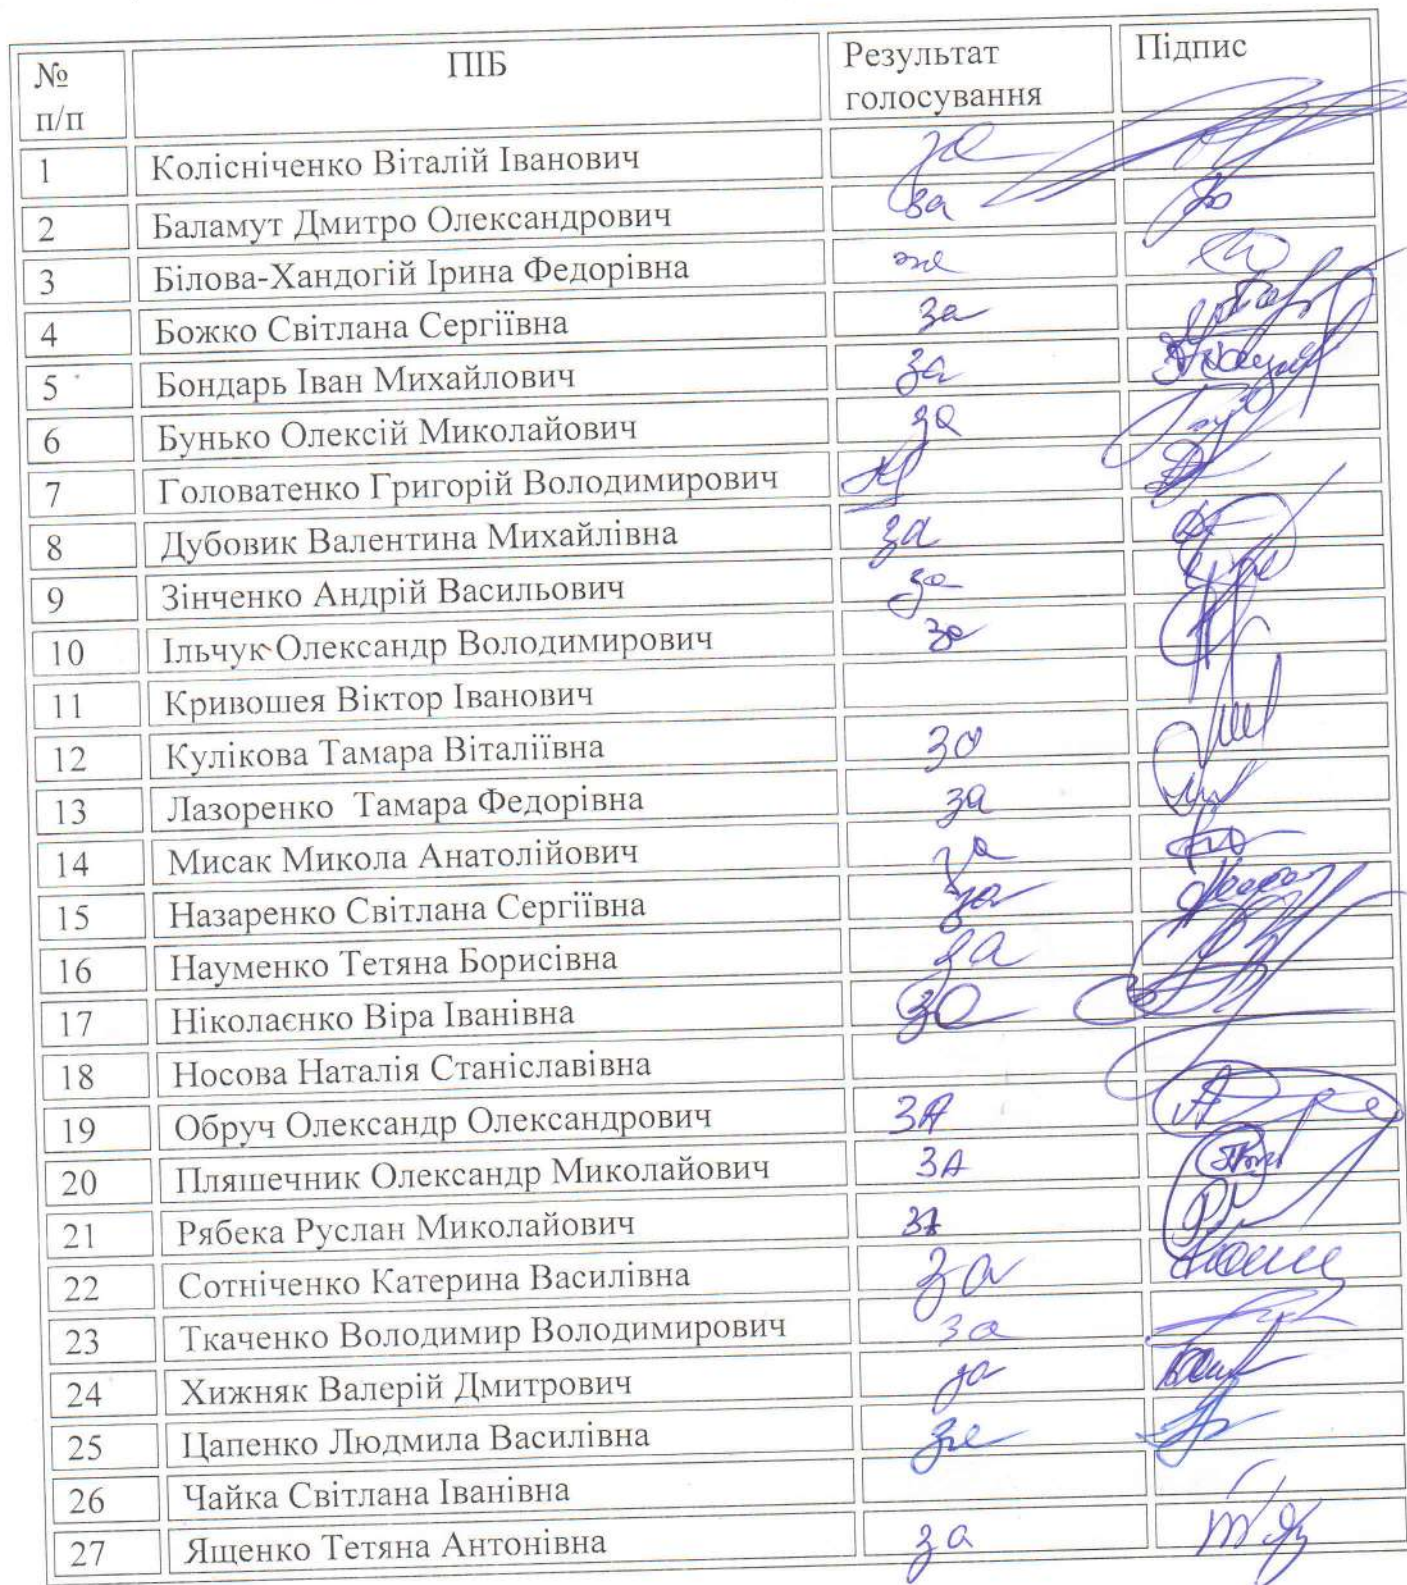 № п/п ПІБ Результат голосування Підпис
1 Колісніченко Віталій Іванович за
2 Баламут Дмитро Олександрович за
3 Білова-Хандогій Ірина Федорівна за
4 Божко Світлана Сергіївна за
5 Бондарь Іван Михайлович за
6 Бунько Олексій Миколайович за
7 Головатенко Григорій Володимирович
8 Дубовик Валентина Михайлівна за
9 Зінченко Андрій Васильович за
10 Ільчук Олександр Володимирович за
11 Кривошея Віктор Іванович
12 Кулікова Тамара Віталіївна за
13 Лазоренко Тамара Федорівна за
14 Мисак Микола Анатолійович за
15 Назаренко Світлана Сергіївна за
16 Науменко Тетяна Борисівна за
17 Ніколаєнко Віра Іванівна за
18 Носова Наталія Станіславівна
19 Обруч Олександр Олександрович ЗА
20 Пляшечник Олександр Миколайович ЗА
21 Рябека Руслан Миколайович ЗА
22 Сотніченко Катерина Василівна за
23 Ткаченко Володимир Володимирович за
24 Хижняк Валерій Дмитрович за
25 Цапенко Людмила Василівна за
26 Чайка Світлана Іванівна
27 Ященко Тетяна Антонівна за